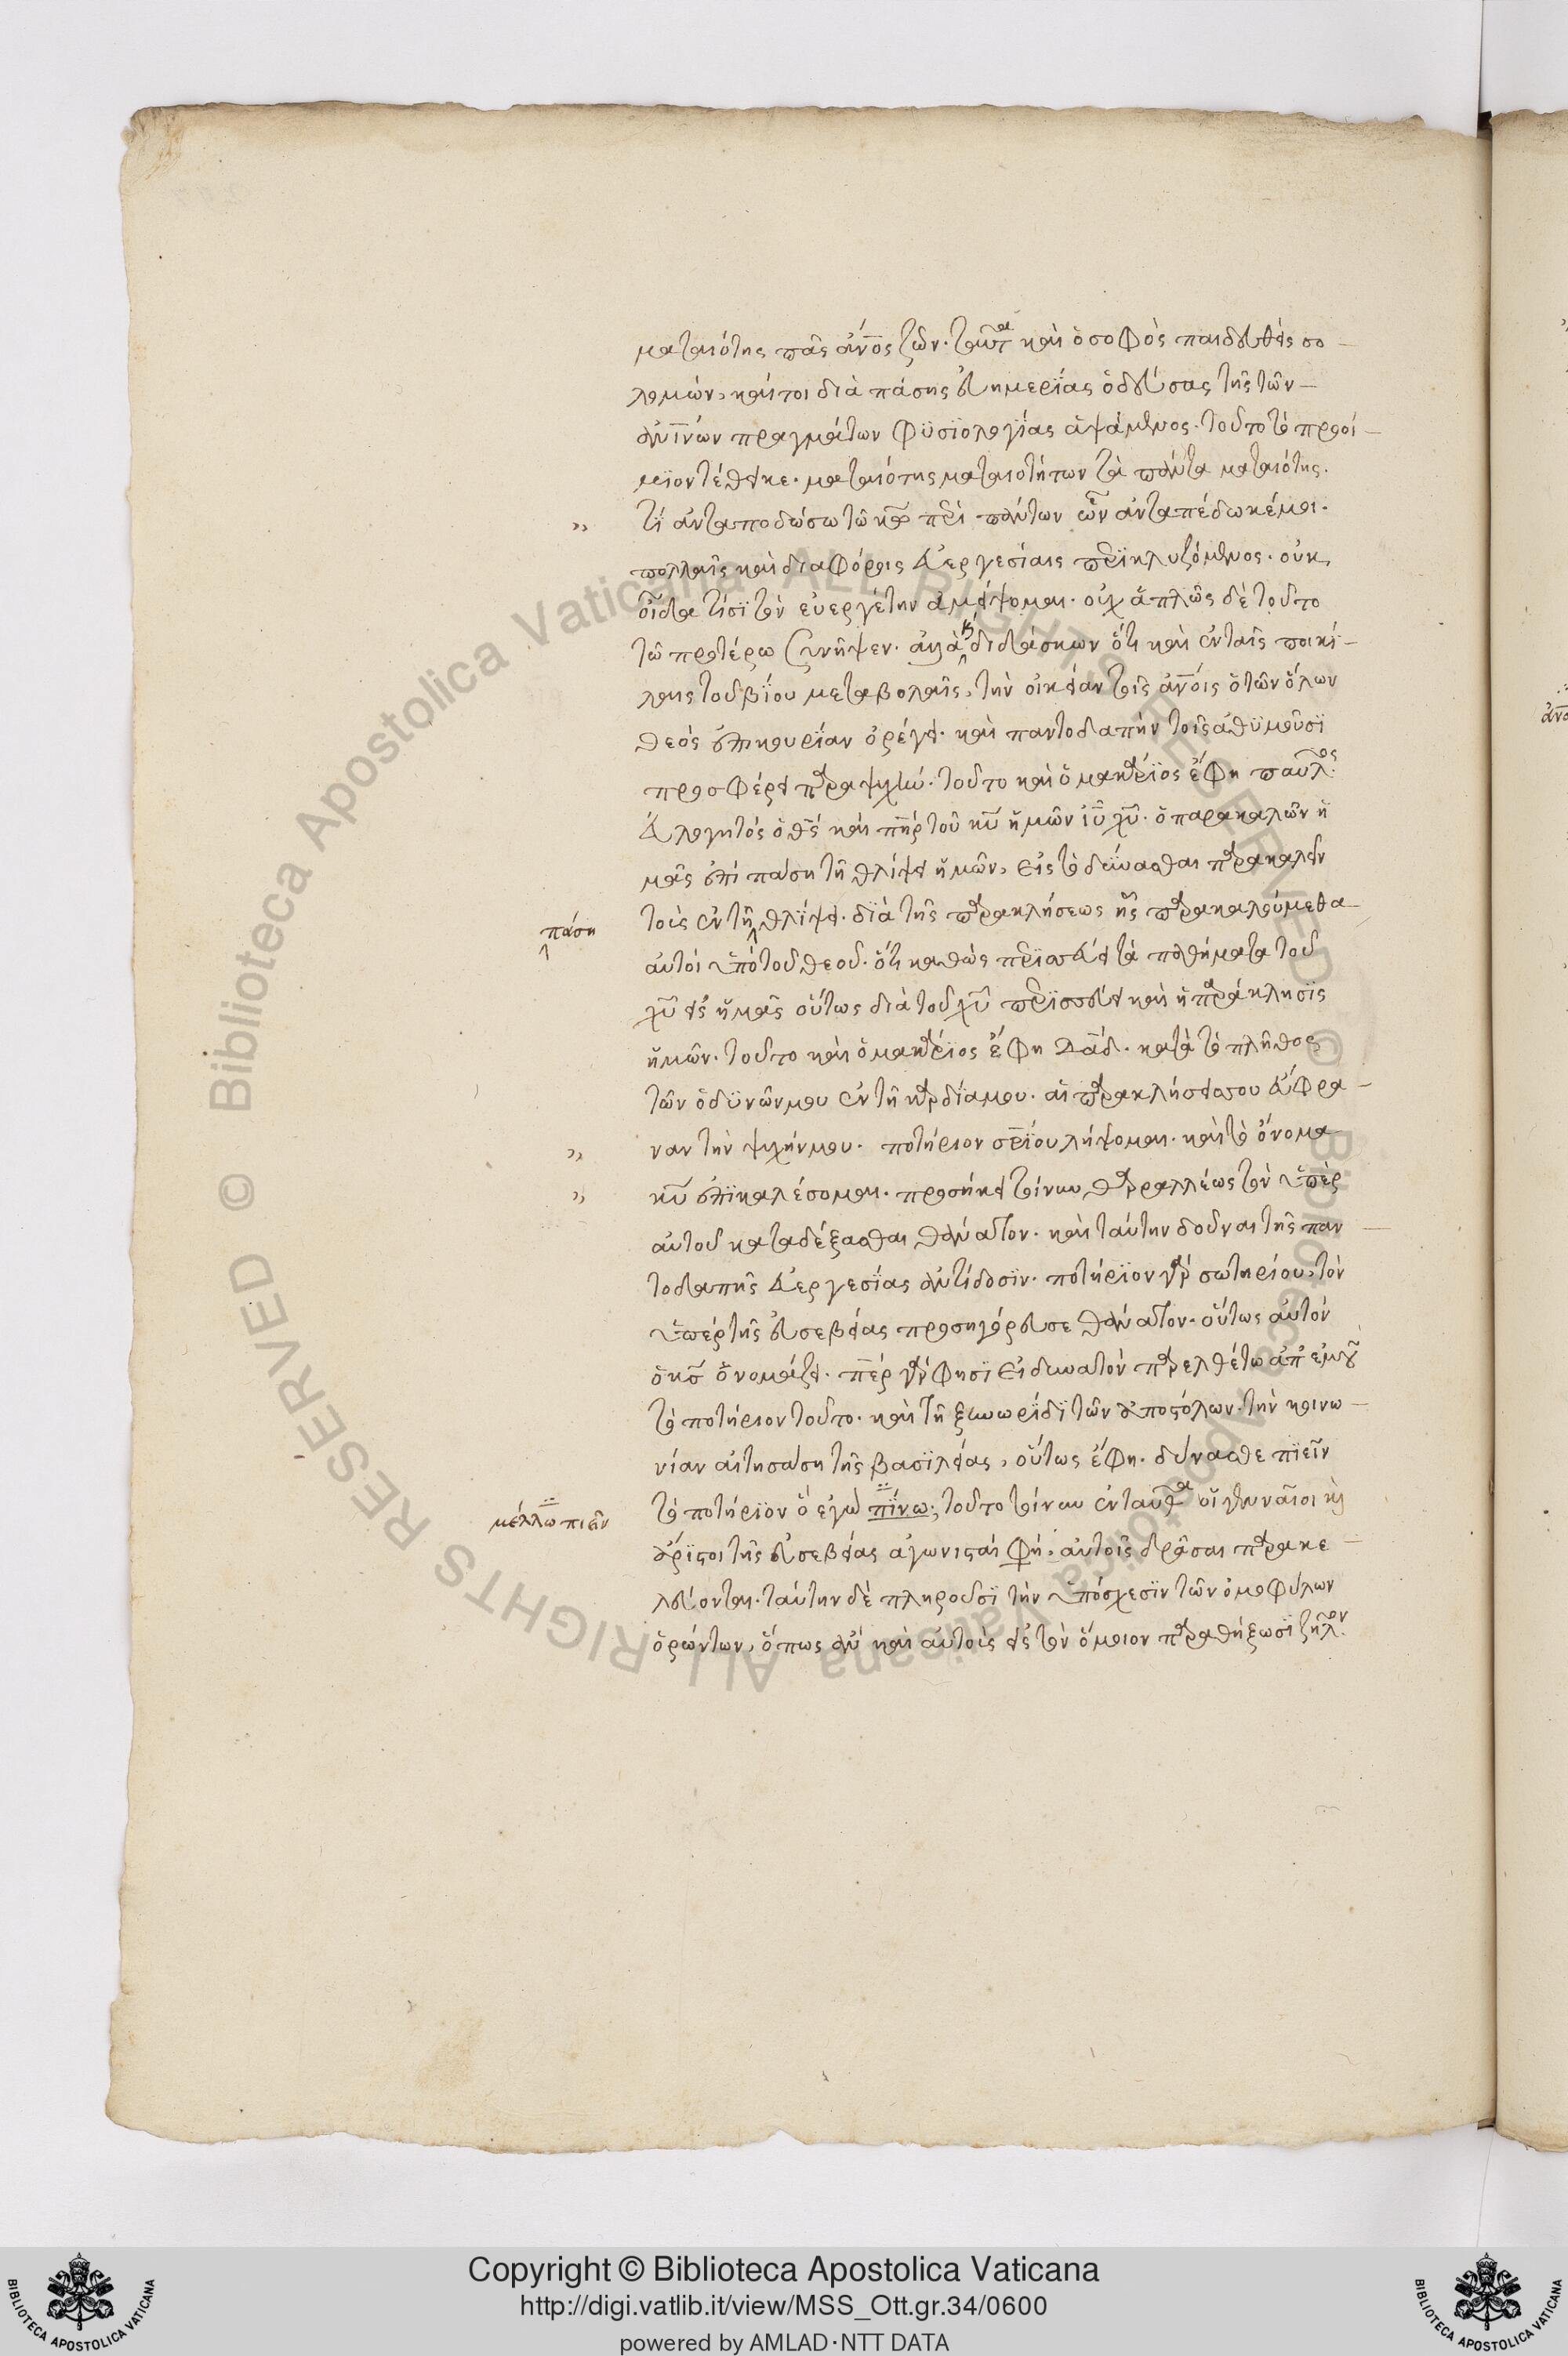 ματαιότης πᾶς ἄνος ζῶν. ταῦτα καὶ ὁ σοφὸς παιδευθεὶς σο-
λομών, καίτοι διὰ πάσης εὐημερίας ὁδεύσας τῆς τῶν-
ἀνίνων πραγμάτων φϋσϊολογίας ἁψάμενος. τοῦτο τὸ προοί-
μϊον τέθεικε. ματαιότης ματαιοτήτων τὰ πάντα ματαιότης.
" τί ἀνταποδώσω τῶ κῶ περὶ πάντων ὧν ἀνταπέδωκέ μοι.
πολλαῖς καὶ διαφόροις εὐεργεσίαις περικλυζόμενος. οὐκ
οἶδα τίσϊ τὸν εὐεργέτην ἀμείψομαι. οὐχ ἁπλῶς δὲ τοῦτο
τῶ προτέρω συνῆψεν. ἀλλὰ καὶ διδάσκων ὅτι καὶ ἐν ταῖς ποικί-
λαις τοῦ βΐου μεταβολαῖς, τὴν οἰκείαν τοῖς ἀνοις ὁ τῶν ὅλων
θεὸς ἐπικουρΐαν ὀρέγει. καὶ παντοδαπὴν τοῖς ἀθϋμοῦσϊ
προσφέρει παραψυχήν. τοῦτο καὶ ὁ μακάρϊος ἔφη παῦλος.
εὐλογητὸς ὁ θς καὶ πηρ τοῦ κυ ἡμῶν ιυ χυ. ὁ παρακαλῶν ἡ
μᾶς ἐπὶ πάση τῆ θλίψει ἡμῶν, εἰς τὸ δύνασθαι παρακαλεῖν
τοὺς ἐν τῆ θλίψει. διὰ τῆς παρακλήσεως ἧς παρακαλούμεθα
πάση
αὐτοὶ ὑπὸ τοῦ θεοῦ. ὅτι καθὼς περισσεύει τὰ παθήματα τοῦ
χυ εἰς ἡμᾶς οὕτως διὰ τοῦ χυ περϊσσεύει καὶ ἡ παράκλησϊς
ἡμῶν. τοῦτο καὶ ὁ μακάριος ἔφη δαδ. κατὰ τὸ πλῆθος
τῶν ὀδϋνῶν μου ἐν τῆ καρδΐα μου. αἱ παρακλήσεις σου εὔφρα-
ναν τὴν ψυχήν μου. ποτήριον σρΐου λήψομαι. καὶ τὸ ὄνομα
" κυ ἐπϊκαλέσομαι. προσήκει τοίνυν θαρραλλέως τὸν ὑπὲρ
" αὐτοῦ καταδέξασθαι θάνατον. καὶ ταύτην δοῦναι τῆς παν-
τοδαπῆς εὐεργεσΐας ἀντίδοσϊν. ποτήρϊον γὰρ σωτηρίου, τὸν
ὑπὲρ τῆς εὐσεβείας προσηγόρευσε θάνατον. οὕτως αὐτὸν
ὁ κς ὀνομάζει. περ γάρ φησϊ εἰ δυνατὸν παρελθέτω ἀπ' ἐμοῦ
τὸ ποτήριον τοῦτο. καὶ τῆ ξυνωρΐδϊ τῶν ἀποστόλων. τὴν κοινω-
νίαν αἰτησάση τῆς βασϊλείας, οὕτως ἔφη. δύνασθε πϊεῖν
τὸ ποτήρϊον ὃ ἐγὼ πΐνω; τοῦτο τοίνυν ἐνταῦθα οἱ γενναῖοι καὶ
μέλλω πιεῖν
ἄρϊστοι τῆς εὐσεβείας ἀγωνισταὶ φη. αὐτοῖς δρᾶσαι παρακε-
λεύονται. ταύτην δὲ πληροῦσϊ τὴν ὑπόσχεσϊν τῶν ὁμοφύλων
ὁρώντων, ὅπως ἂν καὶ αὐτοὺς εἰς τὸν ὅμοιον παραθήξωσϊ ζῆλον.
Copyright © Biblioteca Apostolica Vaticana
http://digi.vatlib.it/view/MSS_Ott.gr.34/0600
powered by AMLAD·NTT DATA
BIBLIOTECA APOSTOLICA VATICANA
BIBLIOTECA APOSTOLICA VATICANA
© Biblioteca Apostolica Vaticana ALL RIGHTS RESERVED © Biblioteca Apostolica Vaticana ALL RIGHTS RESERVED